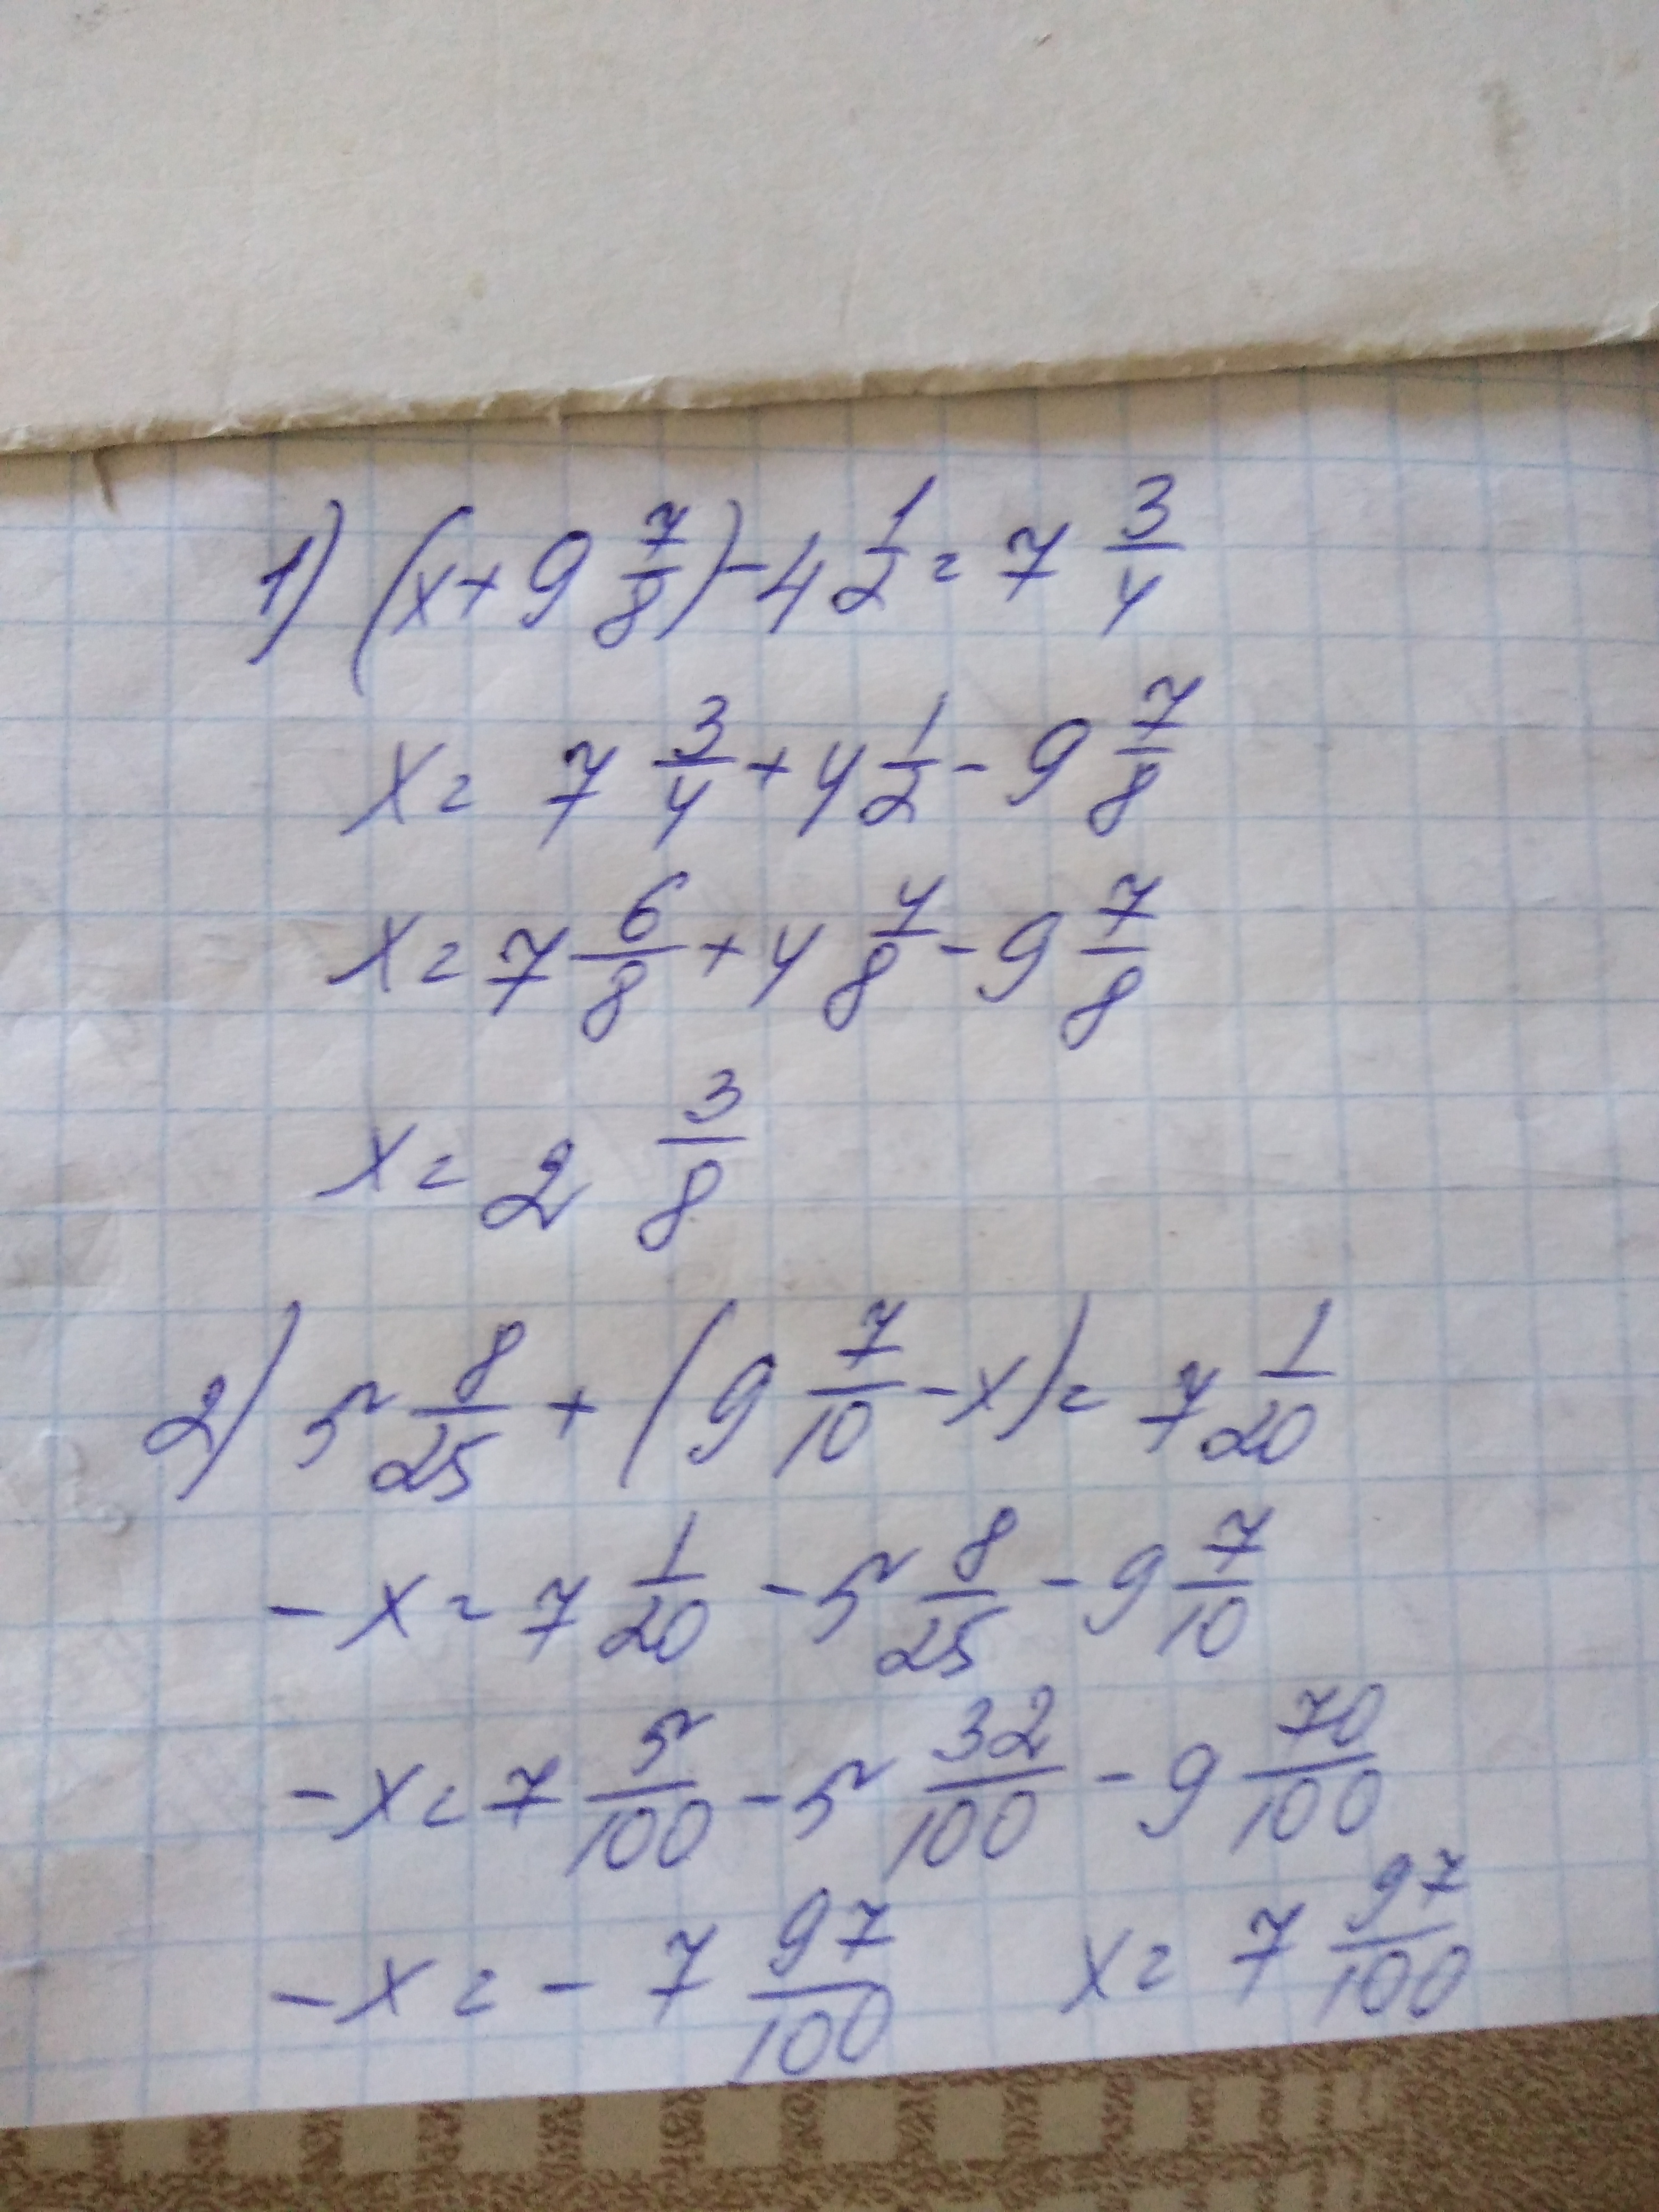 1) (x + 9 7/8) - 4 1/2 = 7 3/4
x = 7 3/4 + 4 1/2 - 9 7/8
x = 7 6/8 + 4 4/8 - 9 7/8
x = 2 3/8
2) 5 8/25 + (9 7/10 - x) = 7 1/20
- x = 7 1/20 - 5 8/25 - 9 7/10
- x = 7 5/100 - 5 32/100 - 9 70/100
- x = - 7 97/100 x = 7 97/100